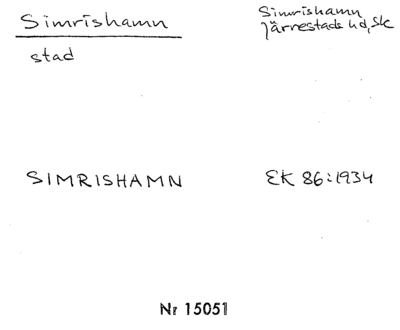 Simrishamn
stad
Simrishamn
Järrestads hd, Sk
SIMRISHAMN
EK 86:1934
Nr 15051